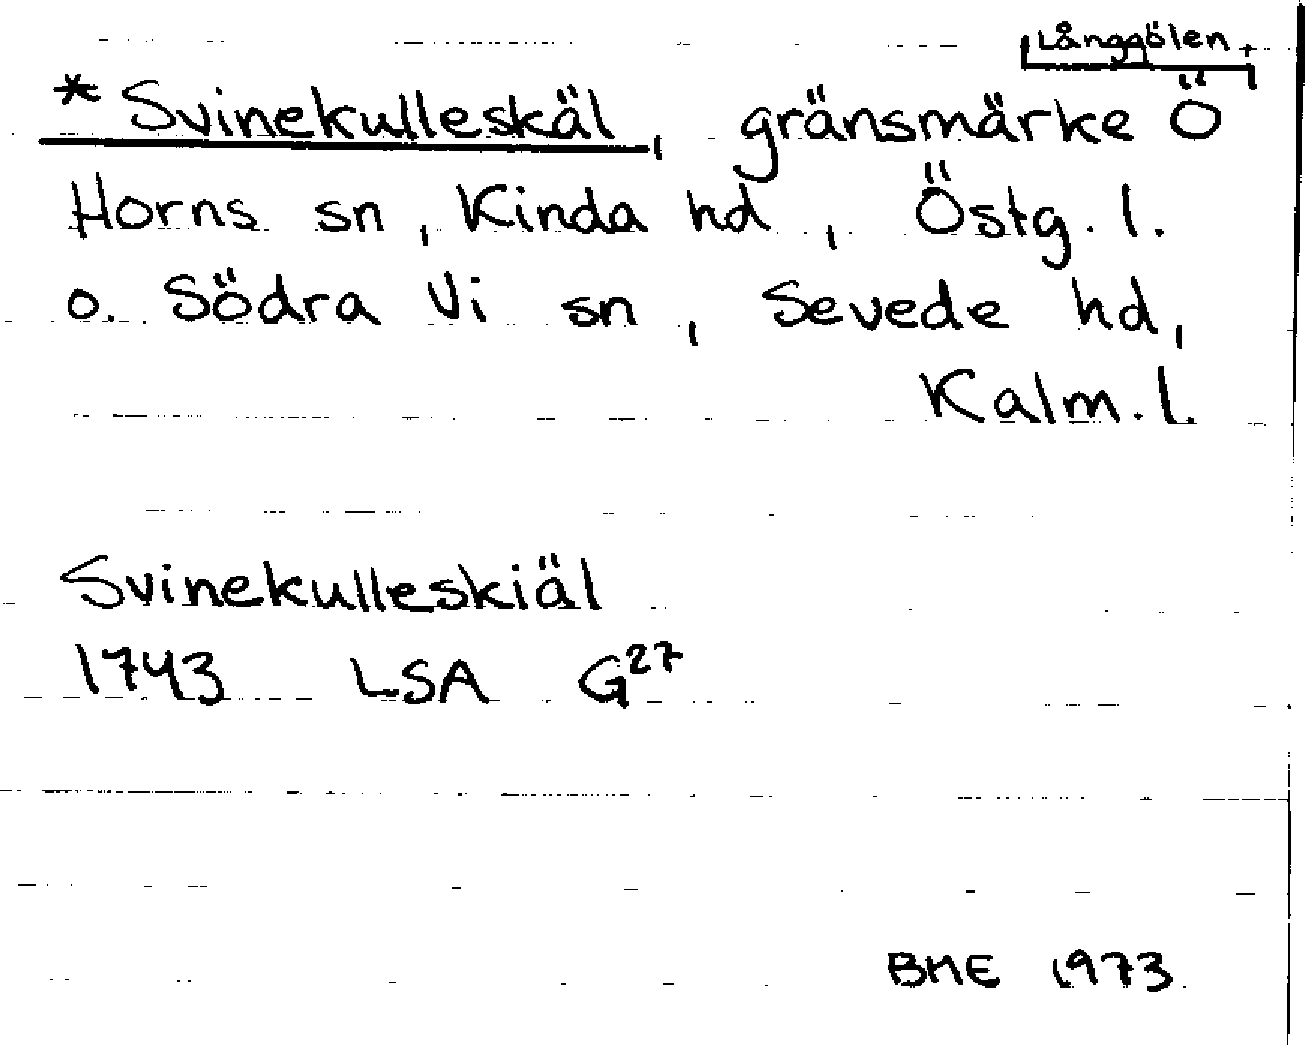 *Svinekulleskäl, gränsmärke Ö
Långgölen,
Horns sn, Kinda hd, Östg. l.
o. Södra Vi sn, Sevede hd,
Kalm. l.
Svinekulleskiäl
1743 LSA G27
BME 1973